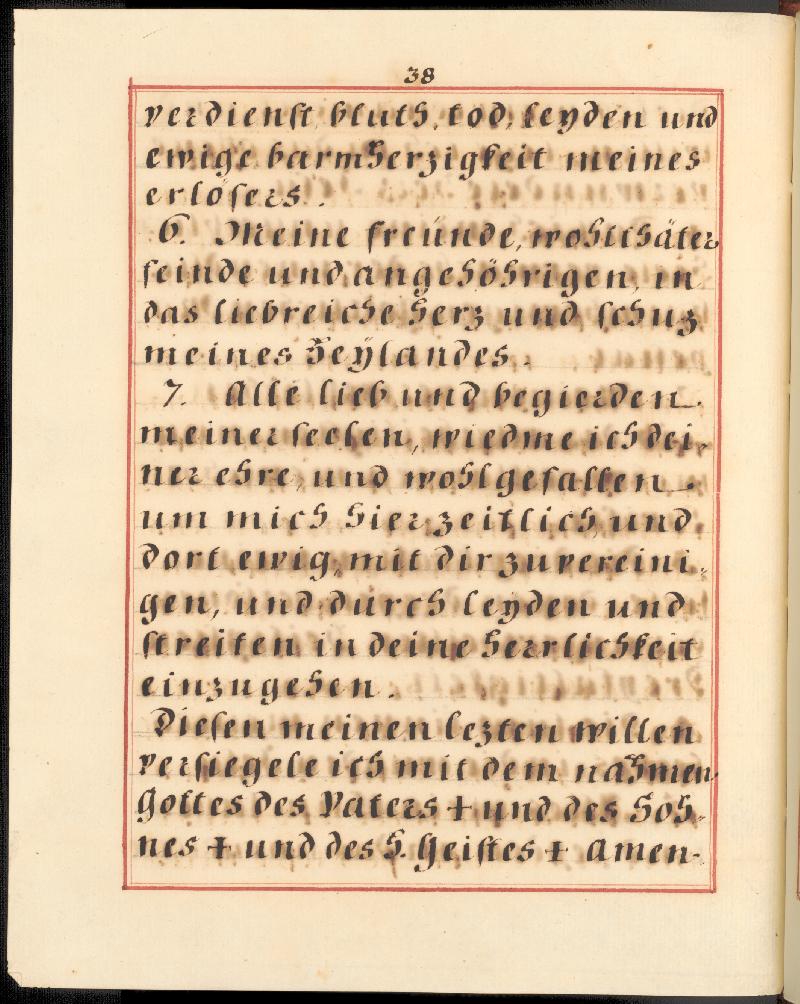 38
verdienst bluts, tod, leyden und
ewige barmherzigkeit meines
erlösers.
6. Meine freünde, wohlthäter
feinde und angehöhrigen, in
das liebreiche herz und schuz
meines heÿlandes.
7. Alle lieb und begierden
meiner seelen, wiedme ich dei-
ner ehre, und wohlgefallen.
um mich hier zeitlich, und
dort ewig, mit dir zu vereini-
gen, und durch leyden und
streiten in deine herrlichkeit
einzugehen.
Diesen meinen lezten willen
versiegele ich mit dem nahmen
Gottes des Vaters + und des Soh-
nes + und des H. Geistes + Amen-